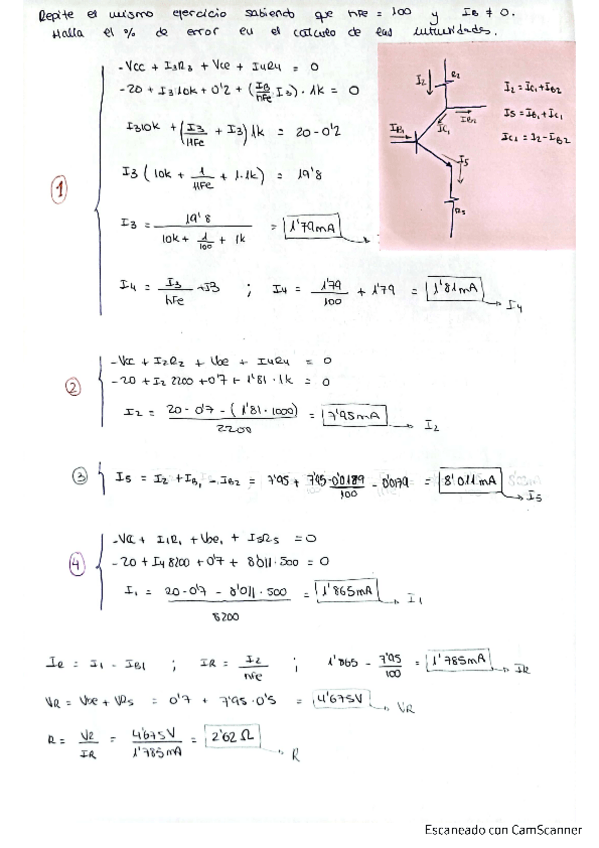 Repite el mismo ejercicio sabiendo que hFE = 100 y IB ≠ 0.
Halla el % de error en el calculo de las intensidades.
-Vcc + I3R3 + Vce + I4R4 = 0
-20 + I3·10k + 0'2 + (I3/hFe · I3)·1k = 0
I310k + (I3/HFe + I3)1k = 20-0'2
I3 (10k + 1/HFe + 1.1k) = 19'8
① I3 = 19'8 / 10k + 1/100 + 1k = 1'79mA
I4 = I3/hFe + I3 ; I4 = 1'79/100 + 1'79 = 1'81mA → I4
I2 R2
I2 = IC1 + IB2
IB1 IC1 IB2
I5 = IB1 + IC1
IC1 = I2 - IB2
I5
R5
-Vcc + I2R2 + Vbe + I4R4 = 0
② -20 + I2 2200 + 0'7 + 1'81·1k = 0
I2 = 20-0'7-(1'81·1000) / 2200 = 7'95mA → I2
③ I5 = I2 + IB1 - IB2 = 7'95 + 7'95-0'0189/100 - 0'0179 = 8'011mA → I5
-Vcc + I1R1 + Vbe1 + I5R5 = 0
④ -20 + I1 8200 + 0'7 + 8'011·500 = 0
I1 = 20-0'7 - 8'011·500 / 8200 = 1'865mA → I1
IR = I1 - IB1 ; IR = I2/hFe ; 1'865 - 7'95/100 = 1'785mA → IR
VR = Vbe + VR5 = 0'7 + 7'95·0'5 = 4'675V → VR
R = VR/IR = 4'675V/1'785mA = 2'62 Ω → R
Escaneado con CamScanner